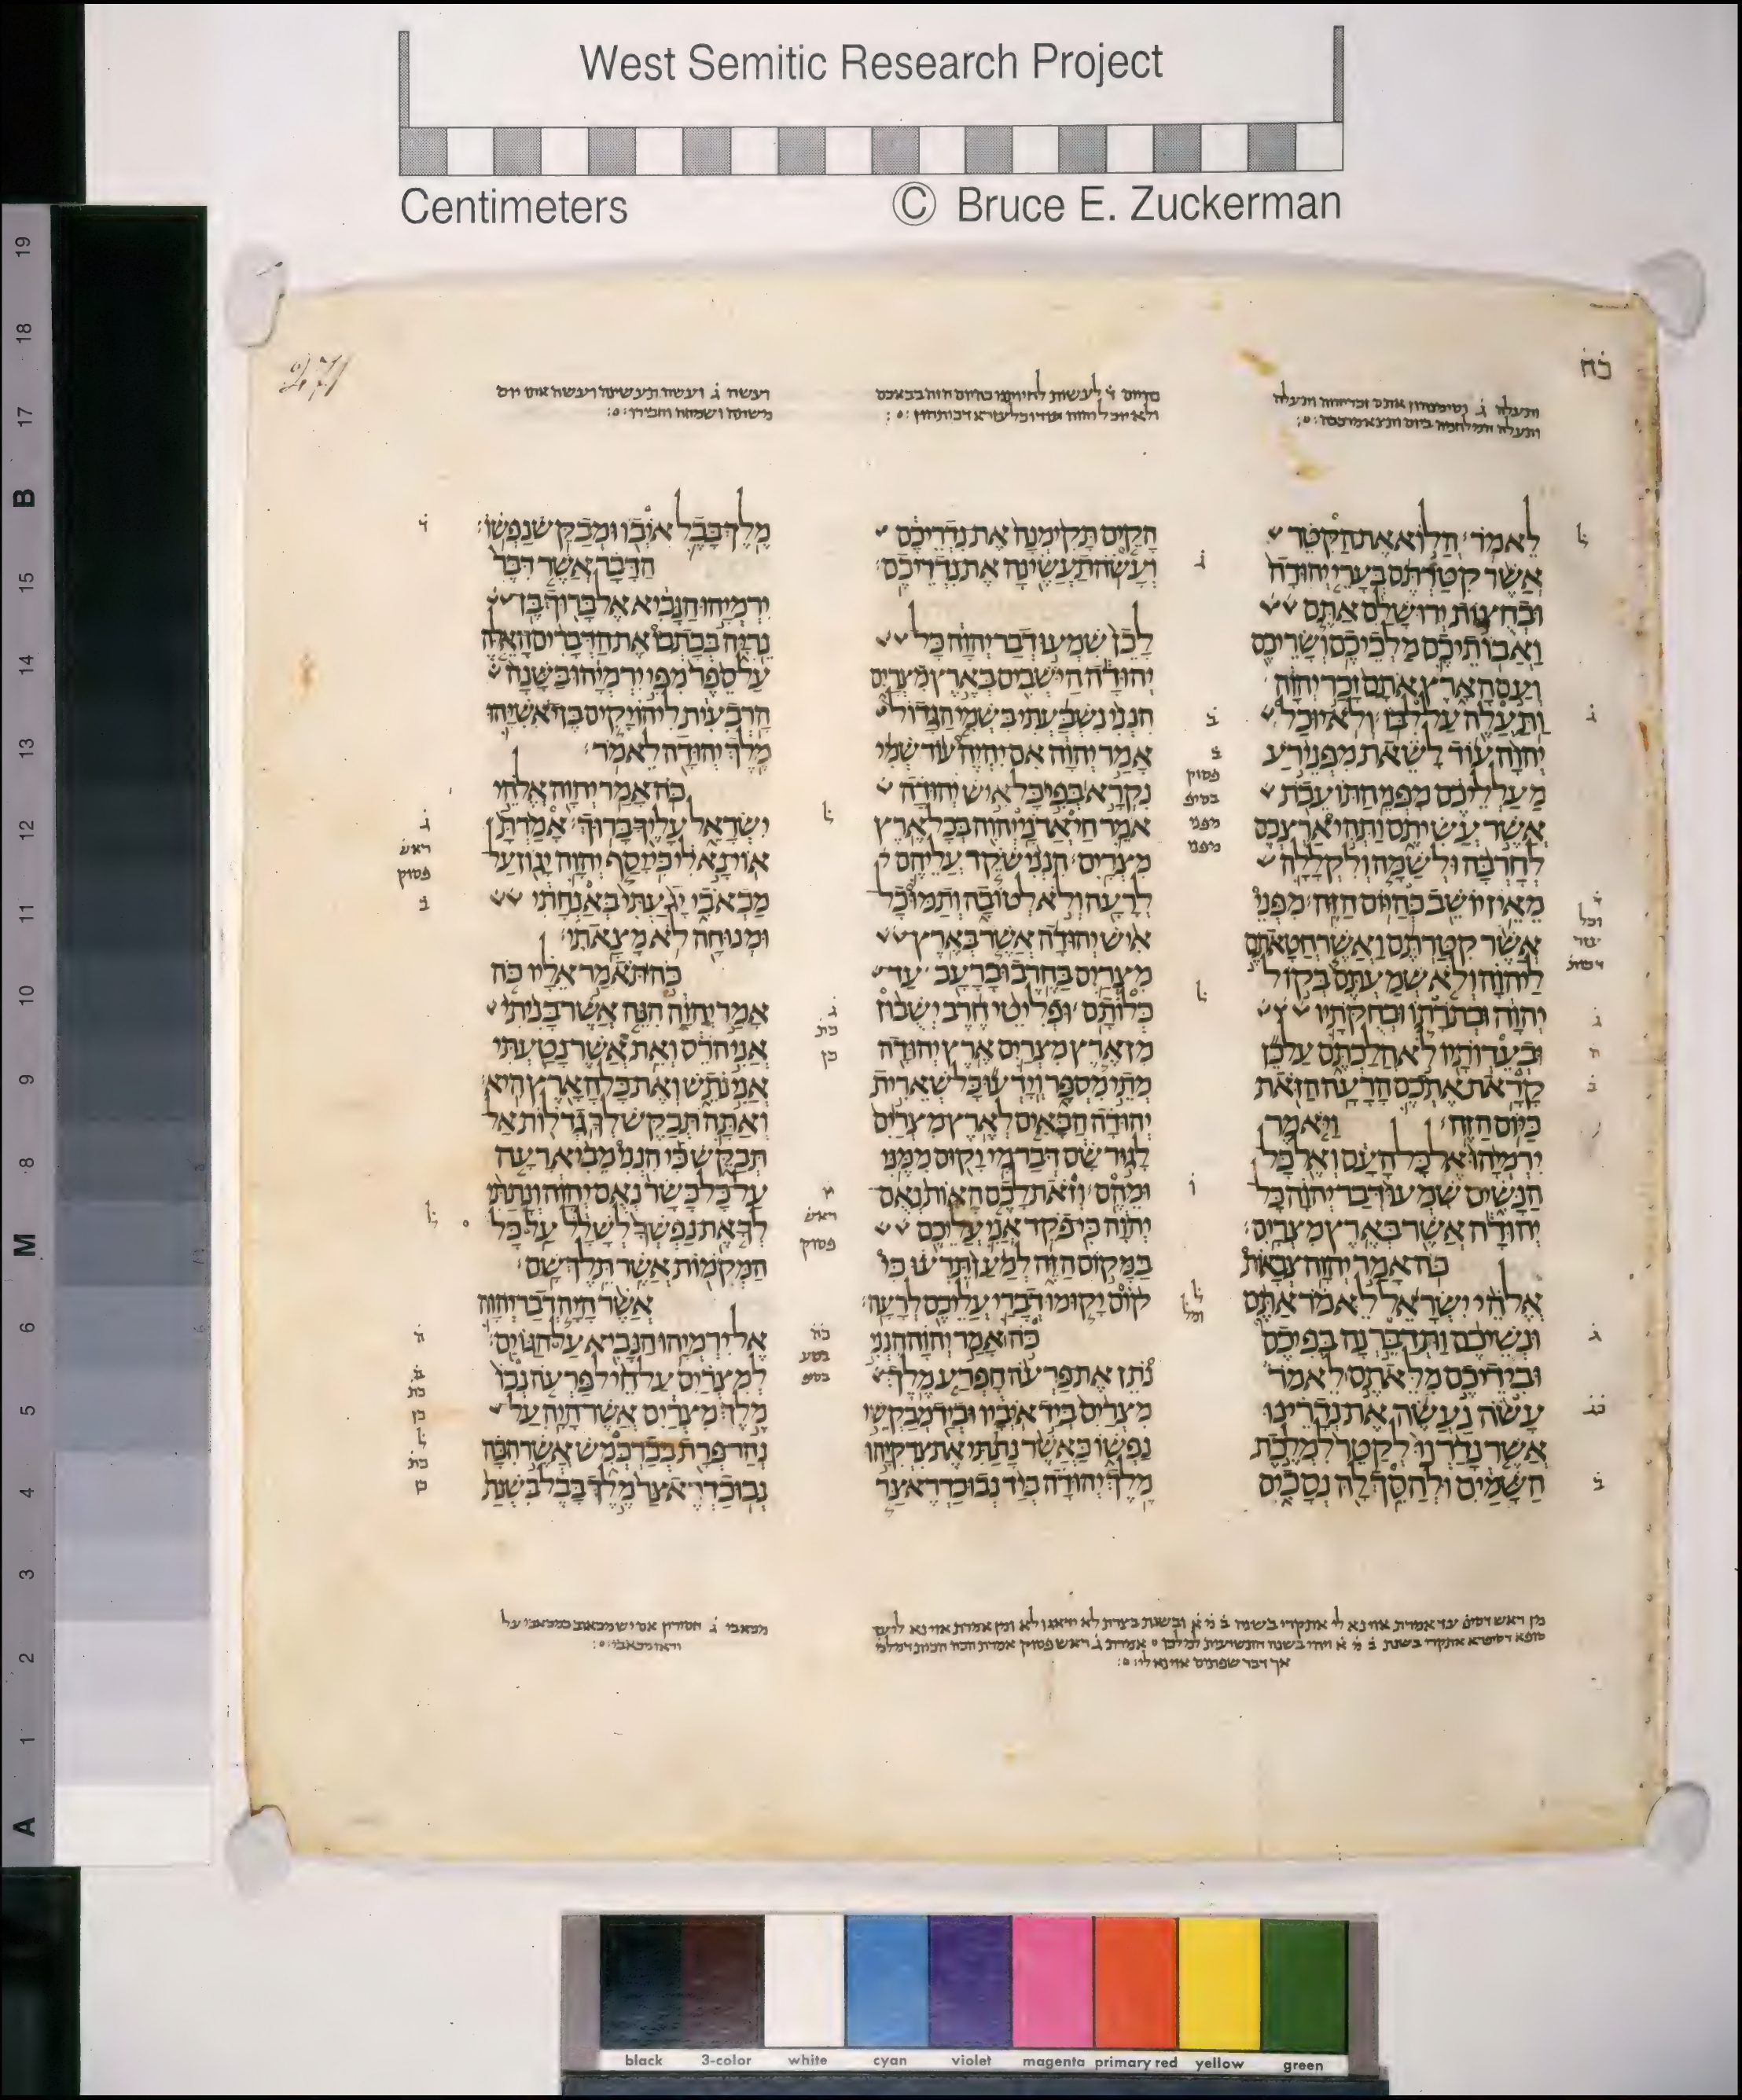 West Semitic Research Project
Centimeters © Bruce E. Zuckerman
271
כח
לאמר׃ הלוא את הקטר
אשר קטרתם בערי יהודה
ובחצות ירושלם אתם
ואבותיכם מלכיכם ושריכם
ועם הארץ אתם זכר יהוה
ותעלה על לבו׃ ולא יוכל
יהוה עוד לשאת מפני רע
מעלליכם מפני התועבת
אשר עשיתם ותהי ארצכם
לחרבה ולשמה ולקללה
מאין יושב כהיום הזה׃ מפני
אשר קטרתם ואשר חטאתם
ליהוה ולא שמעתם בקול
יהוה ובתרתו ובחקתיו
ובעדותיו לא הלכתם על כן
קראת אתכם הרעה הזאת
כיום הזה׃ ויאמר
ירמיהו אל כל העם ואל כל
הנשים שמעו דבר יהוה כל
יהודה אשר בארץ מצרים׃
כה אמר יהוה צבאות
אלהי ישראל לאמר אתם
ונשיכם ותדברנה בפיכם
ובידיכם מלאתם לאמר
עשה נעשה את נדרינו
אשר נדרנו לקטר למלכת
השמים ולהסך לה נסכים
הקים תקימנה את נדריכם
ועשה תעשינה את נדריכם׃
לכן שמעו דבר יהוה כל
יהודה הישבים בארץ מצרים
הנני נשבעתי בשמי הגדול
אמר יהוה אם יהיה עוד שמי
נקרא בפי כל איש יהודה
אמר חי אדני יהוה בכל ארץ
מצרים׃ הנני שקד עליהם
לרעה ולא לטובה ותמו כל
איש יהודה אשר בארץ
מצרים בחרב וברעב עד
כלותם׃ ופליטי חרב ישבון
מן ארץ מצרים ארץ יהודה
מתי מספר וידעו כל שארית
יהודה הבאים לארץ מצרים
לגור שם דבר מי יקום ממני
ומהם׃ וזאת לכם האות נאם
יהוה כי פקד אני עליכם
במקום הזה למען תדעו כי
קום יקומו דברי עליכם לרעה׃
כה אמר יהוה הנני
נתן את פרעה חפרע מלך
מצרים ביד איביו וביד מבקשי
נפשו כאשר נתתי את צדקיהו
מלך יהודה ביד נבוכדראצר
מלך בבל איבו ומבקש נפשו׃
הדבר אשר דבר
ירמיהו הנביא אל ברוך בן
נריה בכתבו את הדברים האלה
על ספר מפי ירמיהו בשנה
הרבעית ליהויקים בן יאשיהו
מלך יהודה לאמר׃
כה אמר יהוה אלהי
ישראל עליך ברוך׃ אמרת
אוי נא לי כי יסף יהוה יגון על
מכאבי יגעתי באנחתי
ומנוחה לא מצאתי׃
כה תאמר אליו כה
אמר יהוה הנה אשר בניתי
אני הרס ואת אשר נטעתי
אני נתש ואת כל הארץ היא׃
ואתה תבקש לך גדלות אל
תבקש כי הנני מביא רעה
על כל בשר נאם יהוה ונתתי
לך את נפשך לשלל על כל
המקמות אשר תלך שם׃
אשר היה דבר יהוה
אל ירמיהו הנביא על הגוים׃
למצרים על חיל פרעה נכו
מלך מצרים אשר היה על
נהר פרת בכרכמש אשר הכה
נבוכדראצר מלך בבל בשנת
19 18 17 B 15 14 13 12 11 10 9 8 M 6 5 4 3 2 1 A
black 3-color white cyan violet magenta primary red yellow green